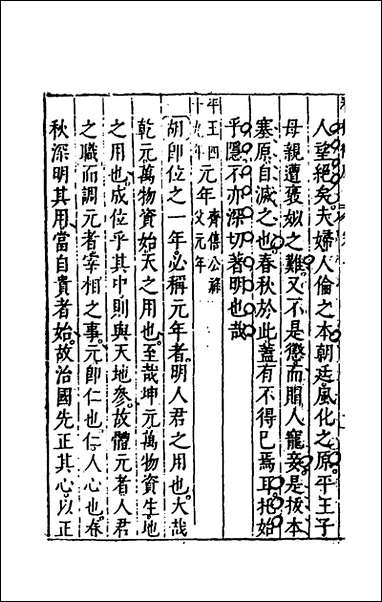 人望絶矣夫婦人倫之本朝廷風化之原平王子
母親遭褒姒之難又不是懲而賵人寵妾是拔本
塞原自滅之也春秋於此蓋有不得已焉耳托始
乎隱不亦深切著明也哉
平王四十九年
元年
齊僖公祿父元年
胡即位之一年必稱元年者明人君之用也大哉
乾元萬物資始天之用也至哉坤元萬物資生地
之用也成位乎其中則與天地參故體元者人君
之職而調元者宰相之事元即仁也仁人心也春
秋深明其用當自貴者始故治國先正其心以正